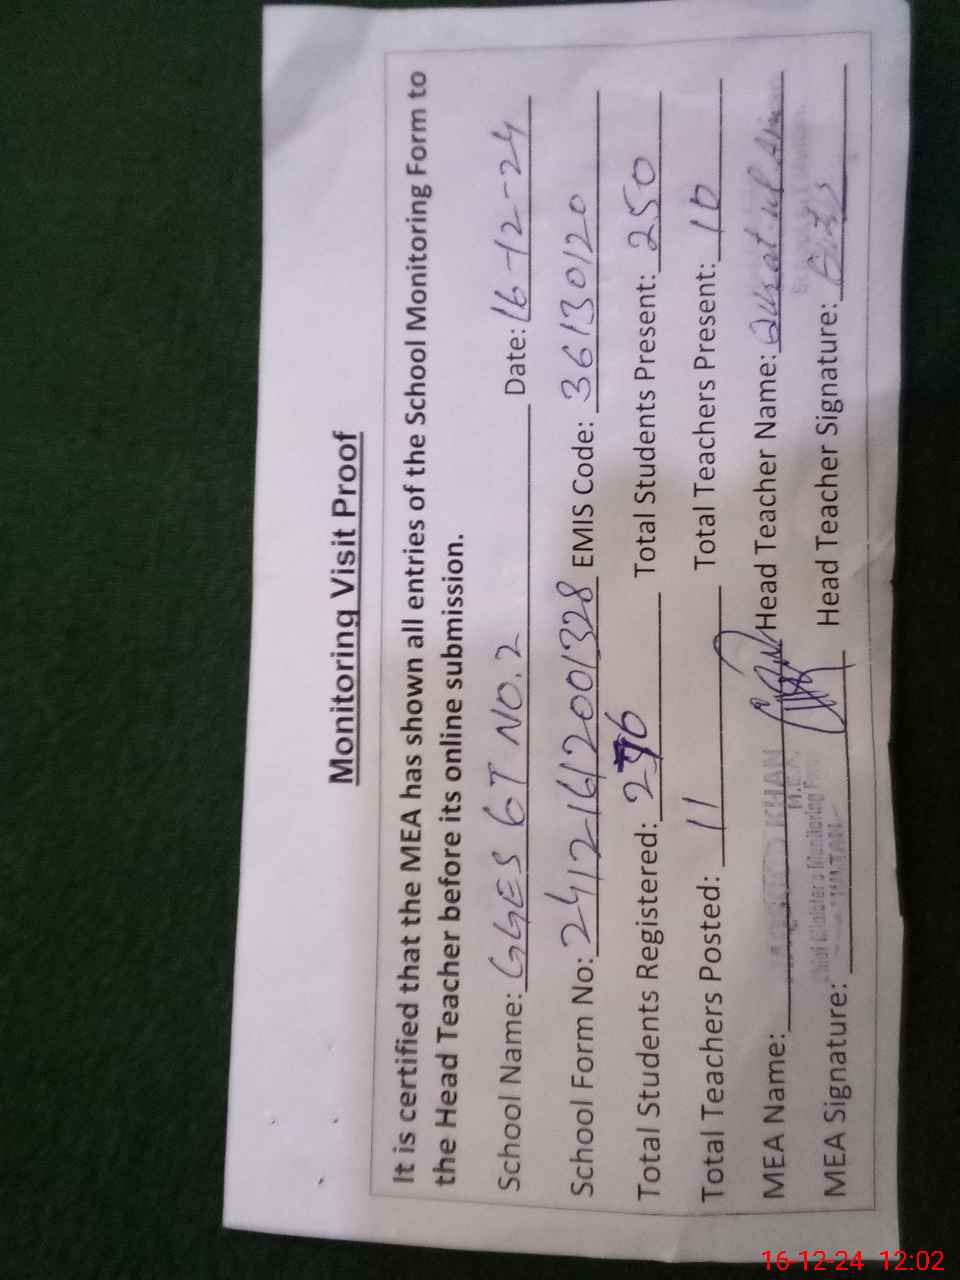 Monitoring Visit Proof
It is certified that the MEA has shown all entries of the School Monitoring Form to
the Head Teacher before its online submission.
School Name: GGES 6T NO.2 Date: 16-12-24
School Form No: 24121612001328 EMIS Code: 36130120
Total Students Registered: Total Students Present: 250
Total Teachers Posted: 11 Total Teachers Present: 10
MEA Name: KHAN Head Teacher Name: Qurat ul Ain
Chief Minister's Monitoring Force
MULTAN
MEA Signature: Head Teacher Signature:
16-12-24 12:02